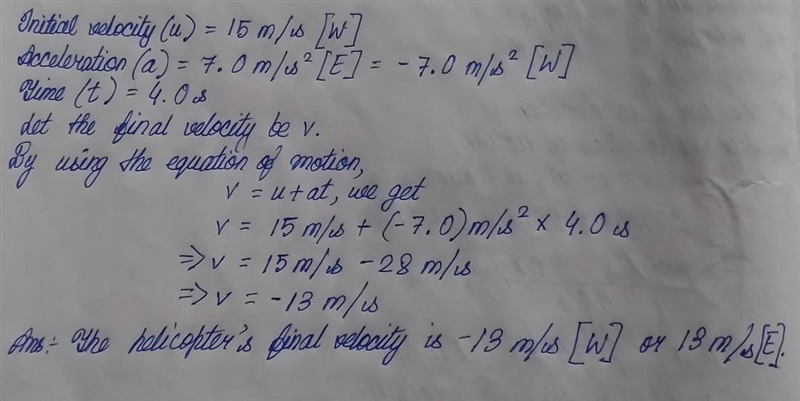 Initial velocity (u) = 15 m/s [W]
Acceleration (a) = 7.0 m/s² [E] = -7.0 m/s² [W]
Time (t) = 4.0 s
Let the final velocity be v.
By using the equation of motion,
v = u + at, we get
v = 15 m/s + (-7.0) m/s² × 4.0 s
⇒ v = 15 m/s - 28 m/s
⇒ v = -13 m/s
Ans:- The helicopter's final velocity is -13 m/s [W] or 13 m/s [E].